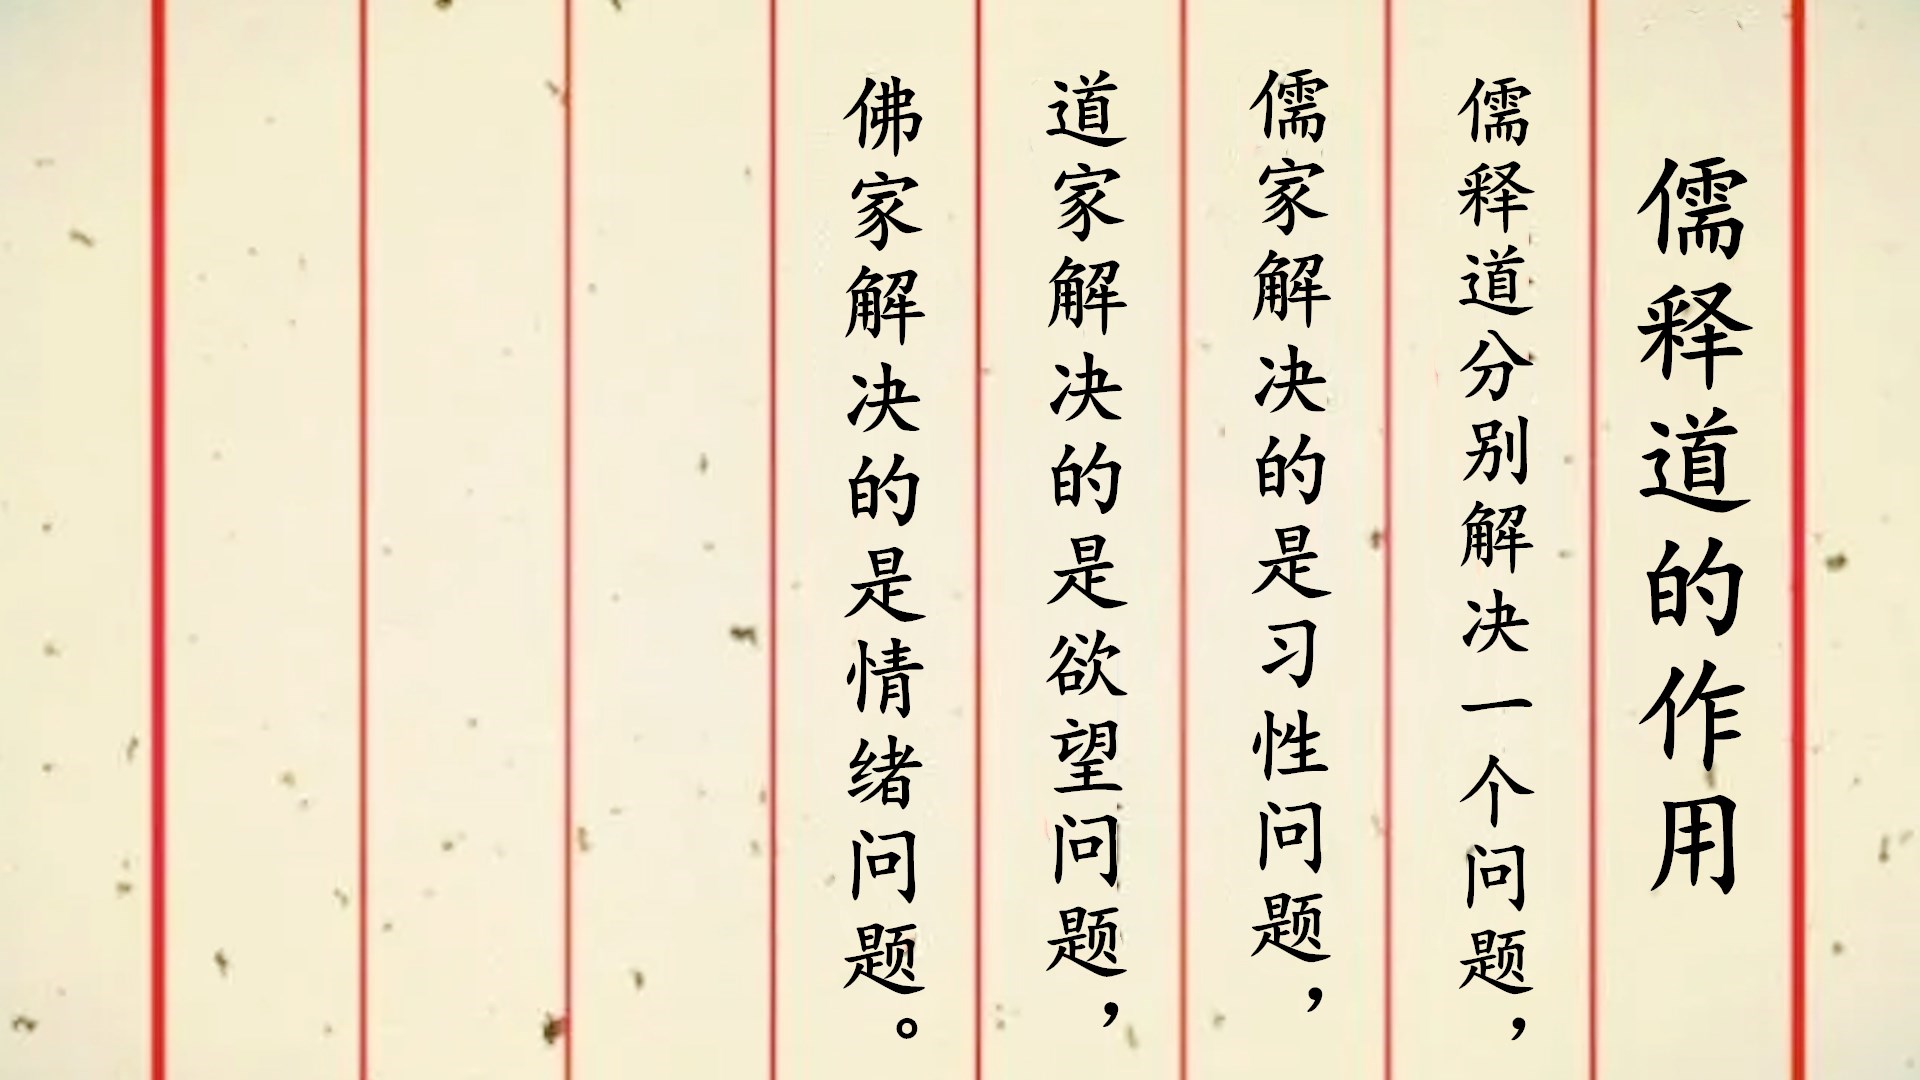 儒释道的作用
儒释道分别解决一个问题，
儒家解决的是习性问题，
道家解决的是欲望问题，
佛家解决的是情绪问题。